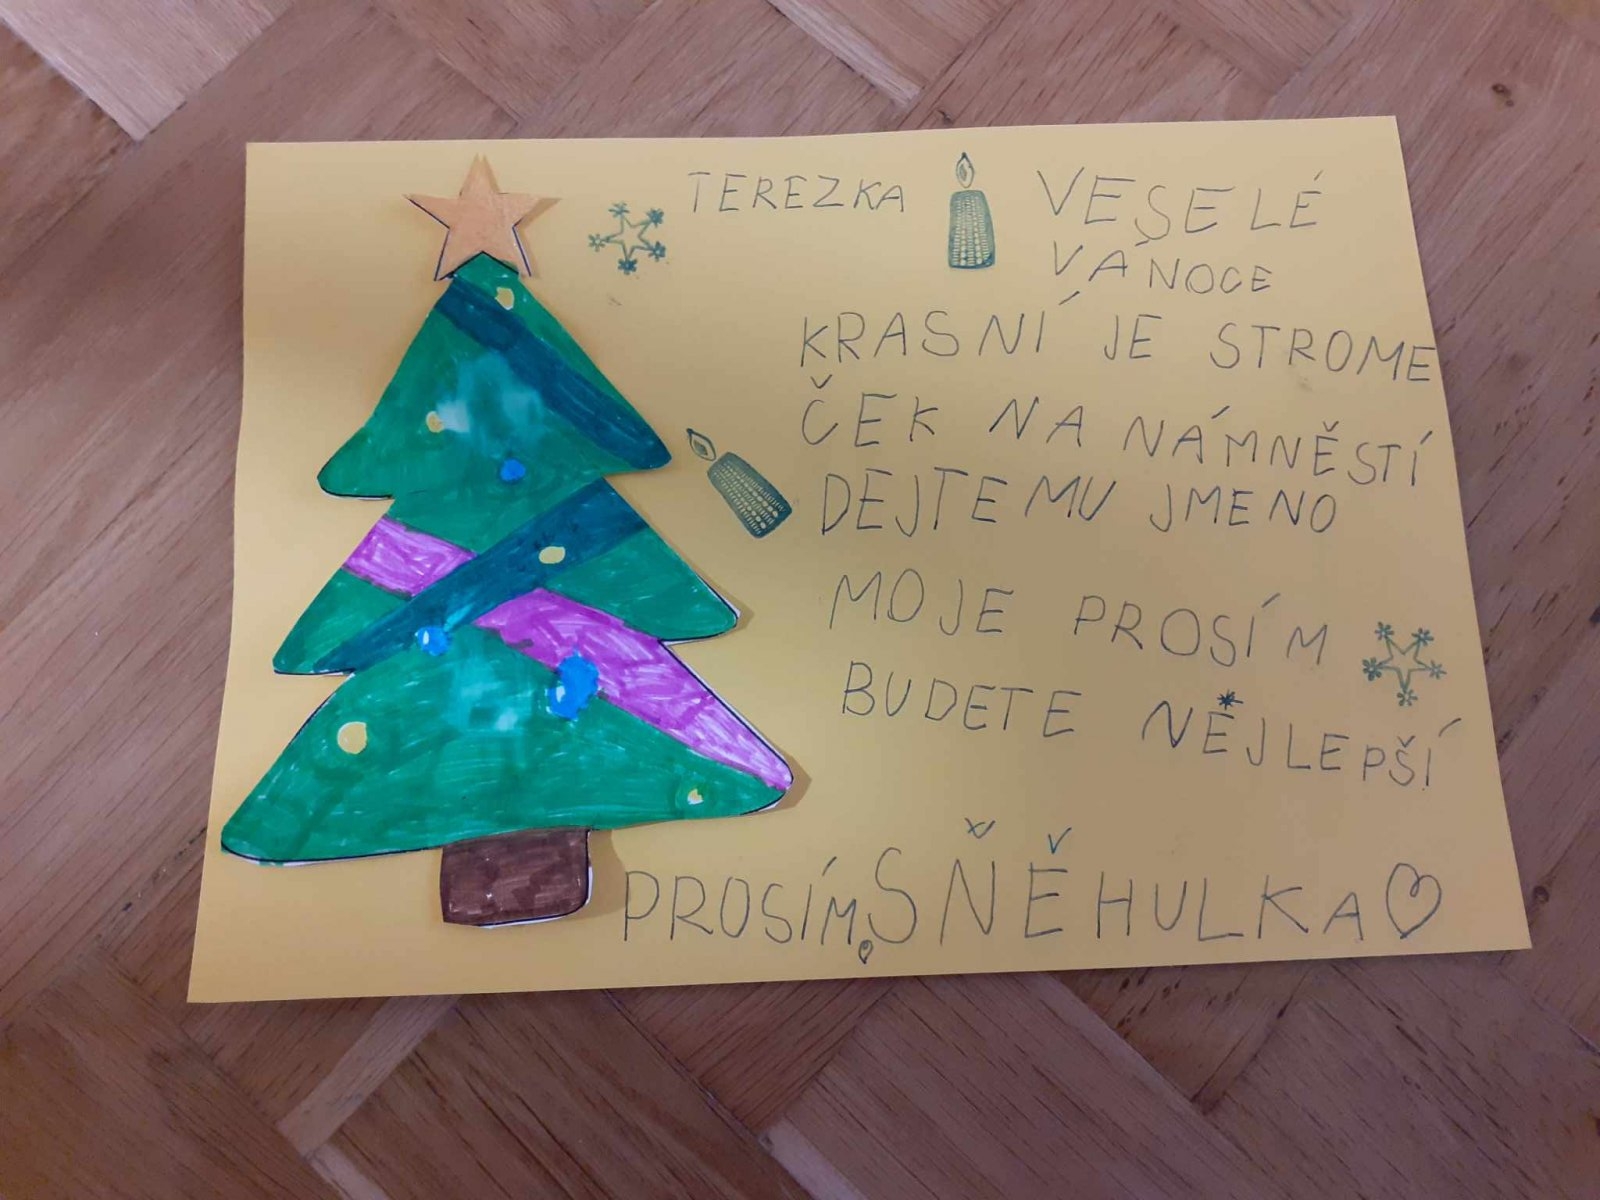 TEREZKA
VESELÉ
VÁNOCE
KRASNÍ JE STROME
ČEK NA NÁMNĚSTÍ
DEJTEMU JMENO
MOJE PROSÍM
BUDETE NĚJLEPŠÍ
PROSÍM, SŇĚHULKA